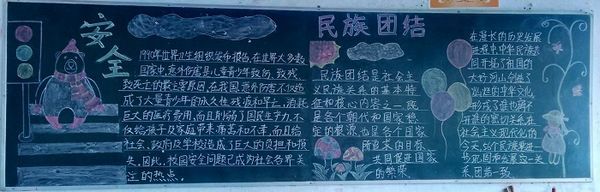 安全
1990年世界卫生组织发布报告,在世界大多数
国家中,意外伤害是儿童青少年致伤、致残、
致死亡的最主要原因,在我国,意外伤害不仅造
成了大量青少年的永久性残疾和早亡,消耗
巨大的医疗费用,而且削弱了国民生产力,不
仅给孩子及家庭带来痛苦和不幸,而且给
社会、政府及学校造成了巨大的负担和损
失。因此,校园安全问题已成为社会各界关
注的热点。
民族团结
民族团结是社会主
义民族关系的基本特
征和核心内容之一,既
是各个朝代和国家稳
定的根源,也是各个国家
所追求的目标,
共同促进国家
的繁荣。
在漫长的历史发展
进程中,中华民族
共同开拓了祖国的
大好河山,创造了
灿烂的中华文化
形成了谁也离不
开谁的密切关系,在
社会主义现代化的
今天,56个民族更进一
步巩固和发展这一关
系团结一致。